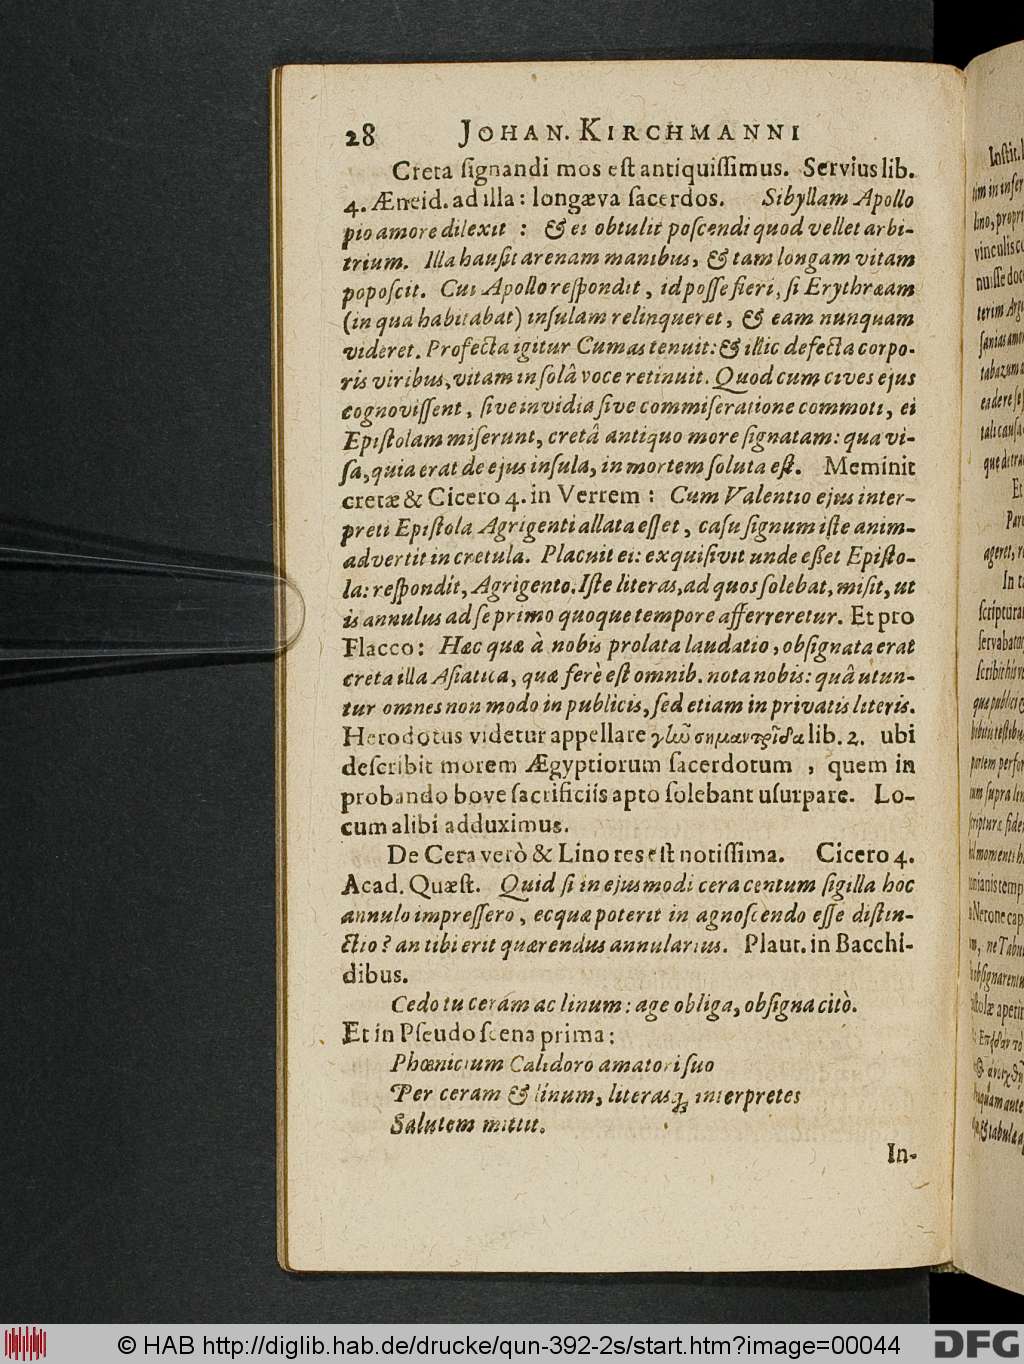 28 JOHAN. KIRCHMANNI
Creta ſignandi mos eſt antiquiſſimus. Servius lib.
4. Æneid. ad illa: longæva ſacerdos. Sibyllam Apollo
pio amore dilexit : & ei obtulit poſcendi quod vellet arbi-
trium. Illa hauſit arenam manibus, & tam longam vitam
popoſcit. Cui Apollo reſpondit, id poſſe fieri, ſi Erythræam
(in qua habitabat) inſulam relinqueret, & eam nunquam
videret. Profecta igitur Cumas tenuit: & illic defecta corpo-
ris viribus, vitam in ſolâ voce retinuit. Quod cum cives ejus
cognoviſſent, ſive invidia ſive commiſeratione commoti, ei
Epiſtolam miſerunt, cretâ antiquo more ſignatam: qua vi-
ſa, quia erat de ejus inſula, in mortem ſoluta eſt. Meminit
cretæ & Cicero 4. in Verrem : Cum Valentio ejus inter-
preti Epiſtola Agrigenti allata eſſet, caſu ſignum iſte anim-
advertit in cretula. Placuit ei: exquiſivit unde eßet Epiſto-
la: reſpondit, Agrigento. Iſte literas, ad quos ſolebat, miſit, ut
is annulus ad ſe primo quoque tempore afferreretur. Et pro
Flacco: Hæc quæ à nobis prolata laudatio, obſignata erat
creta illa Aſiatica, quæ ferè eſt omnib. nota nobis: quâ utun-
tur omnes non modo in publicis, ſed etiam in privatis literis.
Herodotus videtur appellare γλῶ σημαντρῖδα lib. 2. ubi
deſcribit morem Ægyptiorum ſacerdotum , quem in
probando bove ſacrificiis apto ſolebant uſurpare. Lo-
cum alibi adduximus.
De Cera verò & Lino res eſt notiſſima. Cicero 4.
Acad. Quæſt. Quid ſi in ejusmodi cera centum ſigilla hoc
annulo impreſſero, ecquæ poterit in agnoſcendo eſſe diſtin-
ctio? an tibi erit quærendus annularius. Plaut. in Bacchi-
dibus.
Cedo tu ceram ac linum: age obliga, obſigna citò.
Et in Pſeudo ſcena prima:
Phœnicium Calidoro amatori ſuo
Per ceram & linum, literasq; interpretes
Salutem mittit.
In-
© HAB http://diglib.hab.de/drucke/qun-392-2s/start.htm?image=00044
DFG